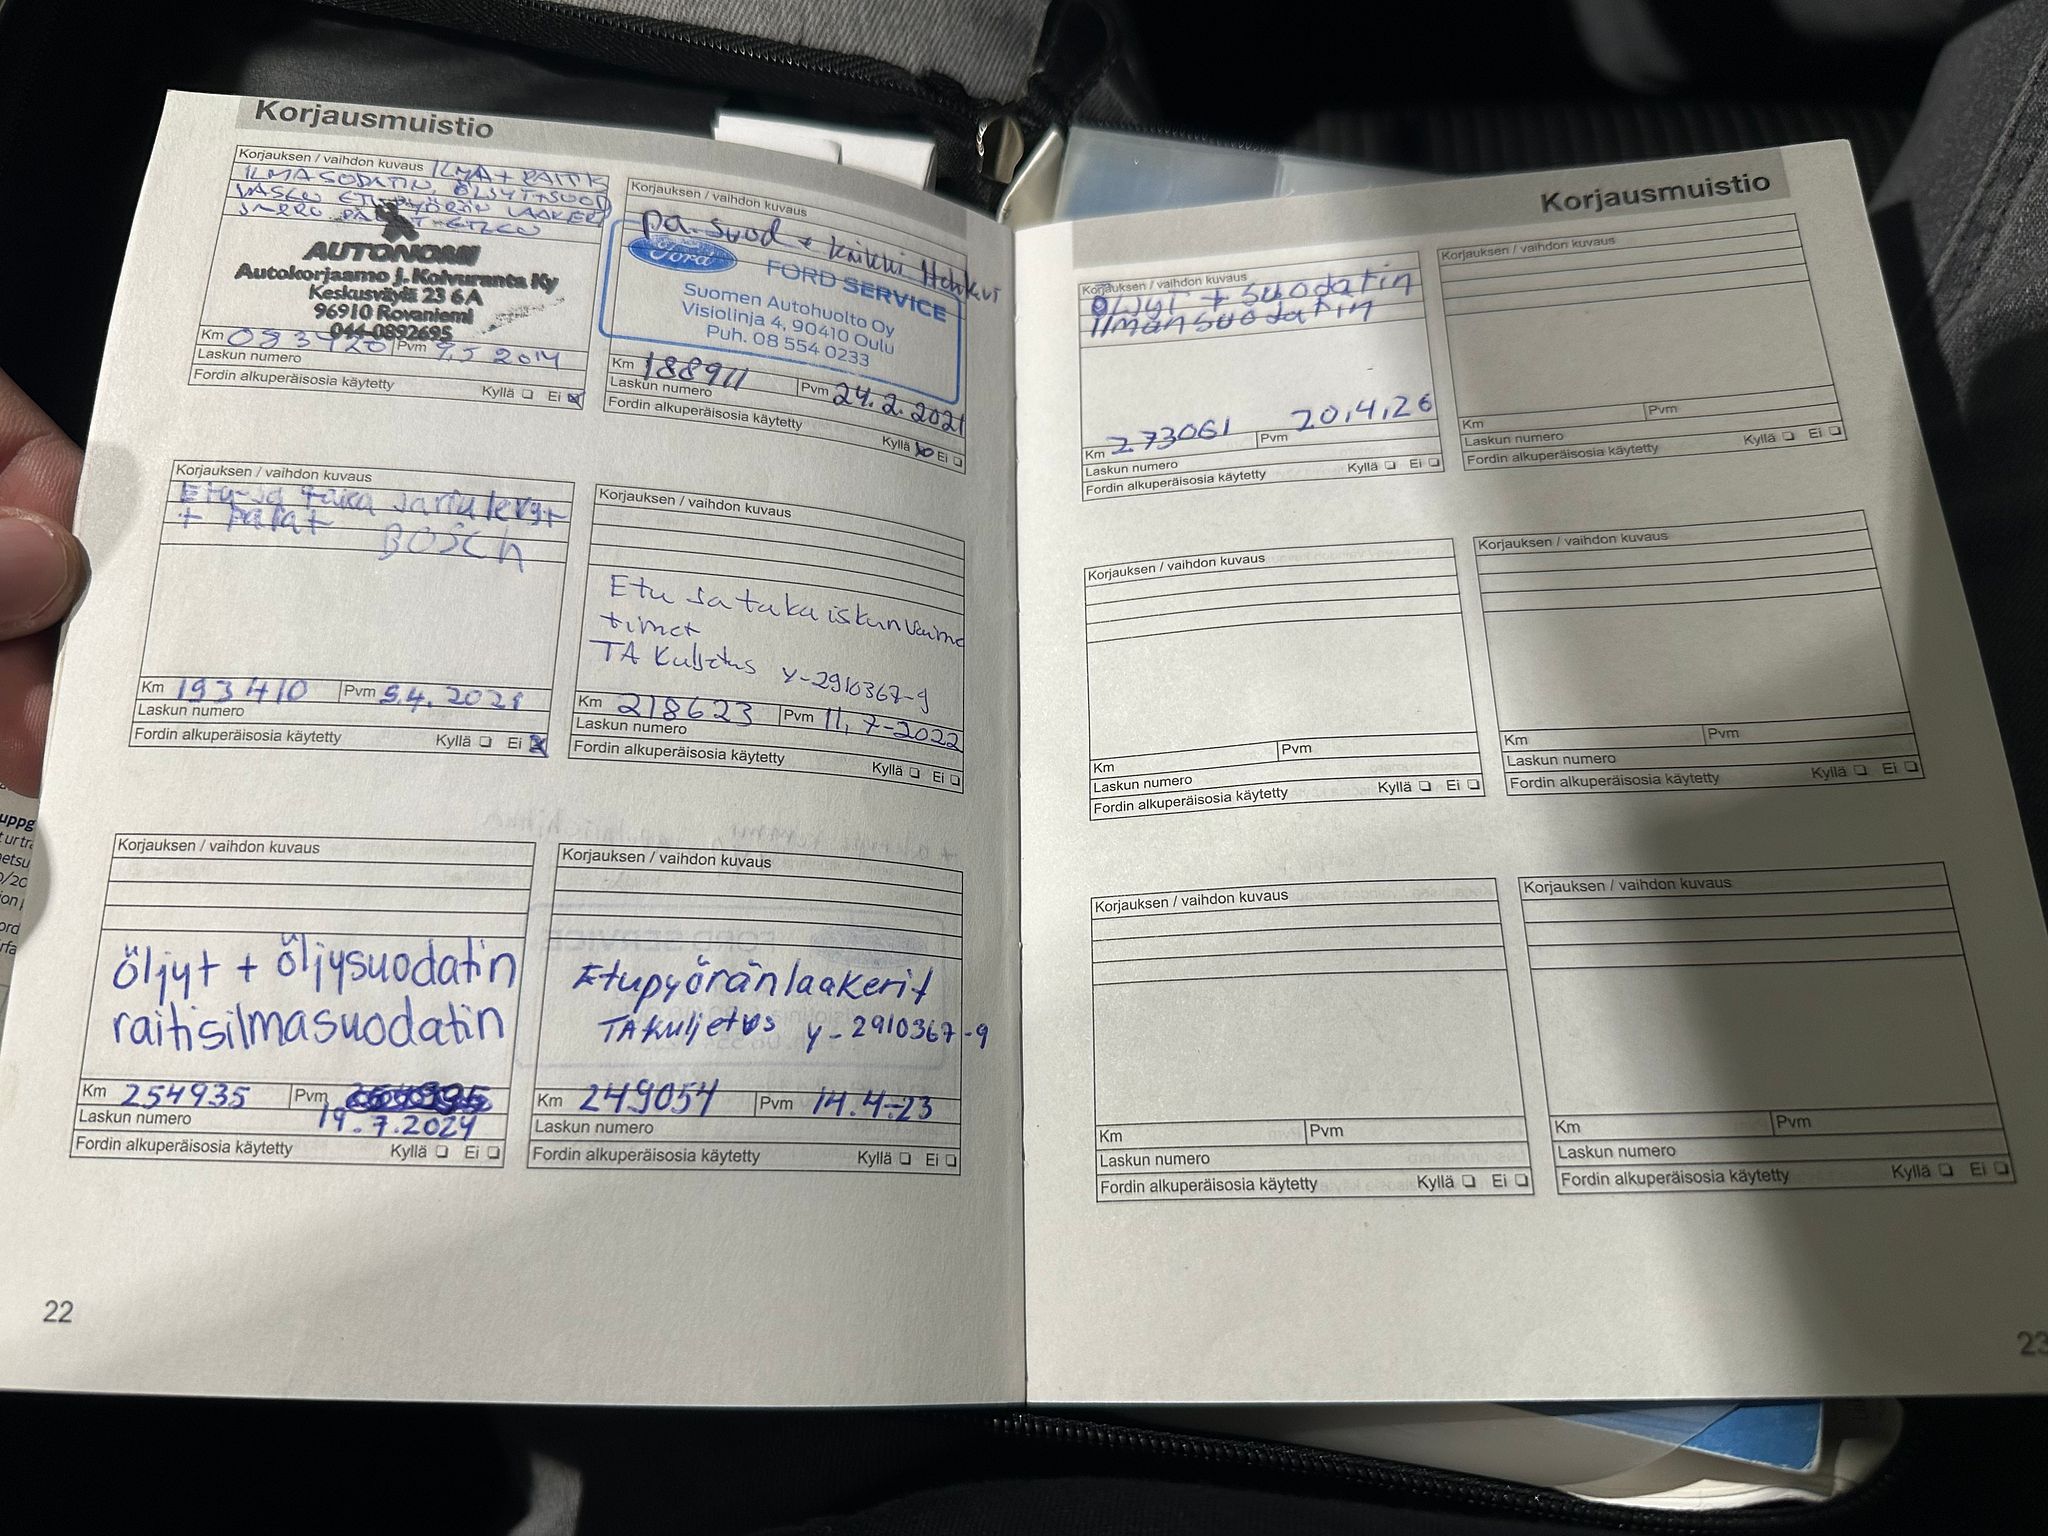 Korjausmuistio
Korjauksen / vaihdon kuvaus ILMA + RAITIS
ILMASODATIN, ÖLJYT+SUOD
VASEN ETUPYÖRÄN LAAKERI
AUTONOMI
Autokorjaamo J. Koivuranta Ky
Keskusväylä 23 6A
96910 Rovaniemi
044-0892695
Km 083420 Pvm 2014
Laskun numero
Fordin alkuperäisosia käytetty Kyllä Ei
Korjauksen / vaihdon kuvaus
pa.suod + kaikki Hehkut
Ford
FORD SERVICE
Suomen Autohuolto Oy
Visiolinja 4, 90410 Oulu
Puh. 08 554 0233
Km 188911 Pvm 24.2.2021
Laskun numero
Fordin alkuperäisosia käytetty
Kyllä Ei
Korjauksen / vaihdon kuvaus
Etu-ja taka jarrulevyt
+ palat BOSCH
Km 193410 Pvm 5.4.2021
Laskun numero
Fordin alkuperäisosia käytetty Kyllä Ei
Korjauksen / vaihdon kuvaus
Etu ja taka iskunvaime
timet
TA Kuljetus y-2910367-9
Km 218623 Pvm 11.7-2022
Laskun numero
Fordin alkuperäisosia käytetty Kyllä Ei
Korjauksen / vaihdon kuvaus
öljyt + öljysuodatin
raitisilmasuodatin
Km 254935 Pvm
Laskun numero 19.7.2024
Fordin alkuperäisosia käytetty Kyllä Ei
Korjauksen / vaihdon kuvaus
Etupyöränlaakerit
TA Kuljetus y-2910367-9
Km 249054 Pvm 14.4.-23
Laskun numero
Fordin alkuperäisosia käytetty Kyllä Ei
22
Korjausmuistio
Korjauksen / vaihdon kuvaus
öljyt + suodatin
ilmansuodatin
Km 273061 Pvm 20,4,26
Laskun numero
Fordin alkuperäisosia käytetty Kyllä Ei
Korjauksen / vaihdon kuvaus
Km Pvm
Laskun numero
Fordin alkuperäisosia käytetty Kyllä Ei
Korjauksen / vaihdon kuvaus
Km Pvm
Laskun numero
Fordin alkuperäisosia käytetty Kyllä Ei
Korjauksen / vaihdon kuvaus
Km Pvm
Laskun numero
Fordin alkuperäisosia käytetty Kyllä Ei
Korjauksen / vaihdon kuvaus
Km Pvm
Laskun numero
Fordin alkuperäisosia käytetty Kyllä Ei
Korjauksen / vaihdon kuvaus
Km Pvm
Laskun numero
Fordin alkuperäisosia käytetty Kyllä Ei
23